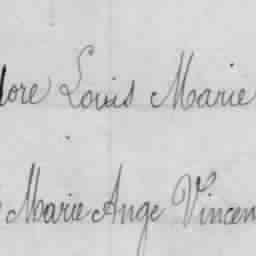 dore Louis Marie
Marie Ange Vincen